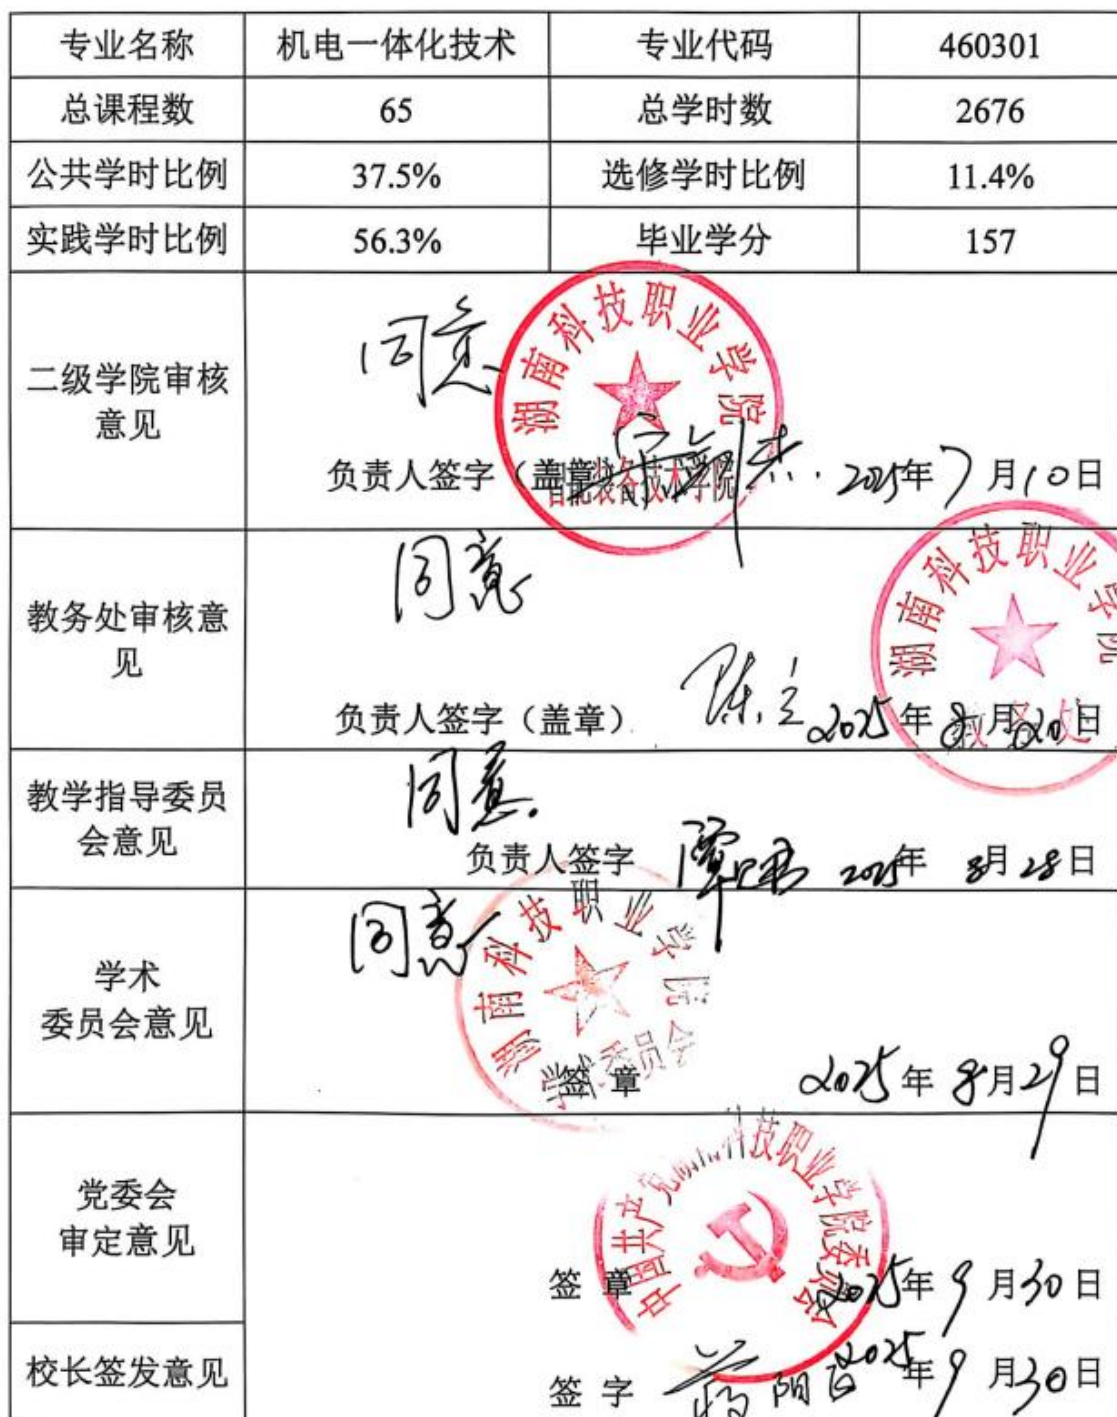 专业名称 机电一体化技术 专业代码 460301
总课程数 65 总学时数 2676
公共学时比例 37.5% 选修学时比例 11.4%
实践学时比例 56.3% 毕业学分 157
二级学院审核
意见
同意
湖南科技职业学院
智能装备技术学院
负责人签字（盖章 2025年7月10日
教务处审核意
见
同意
湖南科技职业学院
教务处
负责人签字（盖章） 陈立 2025年8月20日
教学指导委员
会意见
同意.
负责人签字 2025年8月28日
学术
委员会意见
同意
湖南科技职业学院
学术委员会
签 章 2025年8月29日
党委会
审定意见
中国共产党湖南科技职业学院委员会
签 章 2025年9月30日
校长签发意见
签 字 2025年9月30日